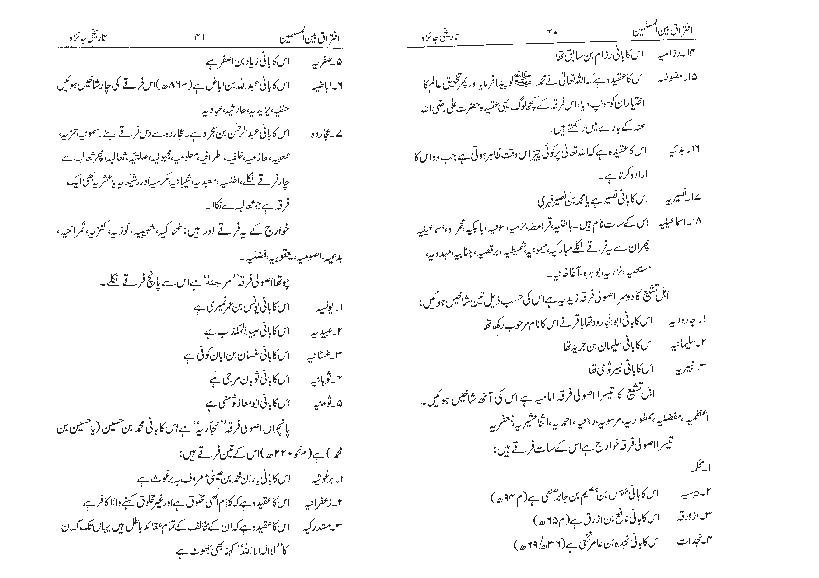 افتراق بین المسلمین ۴۰ تاریخی جائزہ
۱۴۔رزامیہ اس کا بانی رزام بن سابق تھا
۱۵۔مفوضہ اس کا عقیدہ ہے کہ اللہ تعالیٰ نے محمد ﷺ کو پیدا فرمایا اور پھر تخلیق عالم کا
اختیار ان کو سونپ دیا، اس فرقہ کے کچھ لوگ یہی عقیدہ حضرت علی رضی اللہ
عنہ کے بارے میں رکھتے ہیں۔
۱۶۔بدائیہ اس کا عقیدہ ہے کہ اللہ تعالیٰ پر کوئی چیز اس وقت ظاہر ہوتی ہے جب وہ اس کا
ارادہ کرتا ہے۔
۱۷۔نصیریہ اس کا بانی نصیر ہے یا محمد بن نصیر فہری
۱۸۔اسماعیلیہ اس کے سات نام ہیں۔ باطنیہ، قرامطہ، خرمیہ، سبعیہ، بابکیہ، محمرہ، اسماعیلیہ
پھر ان سے یہ فرقے نکلے مبارکیہ، میمونیہ، شمیطیہ، برقعیہ، جنابیہ، مہدویہ،
مستعلیہ، نزاریہ، بوہرہ، آغا خانیہ۔
اہل تشیع کا دوسرا اصولی فرقہ زیدیہ ہے اس کی حسب ذیل تین شاخیں ہوئیں:
۱۔جارودیہ اس کا بانی ابوالجارود تھا باقر نے اس کا نام سرحوب رکھا تھا
۲۔سلیمانیہ اس کا بانی سلیمان بن جریر تھا
۳۔تبیریہ اس کا بانی تبیر ثومی تھا
اہل تشیع کا تیسرا اصولی فرقہ امامیہ ہے اس کی آٹھ شاخیں ہوئیں۔
مفضلیہ، ممطوریہ، موسویہ، رجعیہ، احمدیہ، اثنا عشریہ، جعفریہ
تیسرا اصولی فرقہ خوارج ہے اس کے سات فرقے ہیں:
۱۔محکمہ
۲۔بیہسیہ اس کا بانی بیہس بن ہیصم بن جابر ضبعی ہے (م ۹۴ھ)
۳۔ازارقہ اس کا بانی نافع بن ازرق ہے (م ۶۵ھ)
۴۔نجدات اس کا بانی نجدہ بن عامر نخعی ہے (۳۶ھ/۶۹ھ)
افتراق بین المسلمین ۴۱ تاریخی جائزہ
۵۔صفریہ اس کا بانی زیاد بن اصفر ہے
۶۔اباضیہ اس کا بانی عبداللہ بن اباض ہے (م ۸۶ھ) اس فرقے کی چار شاخیں ہوئیں
حفصیہ، یزیدیہ، حارثیہ، عبادیہ
۷۔عجاردہ اس کا بانی عبدالرحمٰن بن عجرد ہے۔ عجاردہ سے دس فرقے بنے۔ میمونیہ، حمزیہ،
شعیبیہ، حازمیہ، خلفیہ، اطرافیہ، معلومیہ، مجہولیہ، صلتیہ، ثعالبہ، پھر ثعالبہ سے
چار فرقے نکلے، اخنسیہ، معبدیہ، شیبانیہ، مکرمیہ اور رشیدیہ یا عشریہ بھی ایک
فرقہ ہے جو ثعالبہ سے نکلا۔
خوارج کے یہ فرقے اور ہیں: ضحاکیہ، شبیبیہ، کوزیہ، کنزیہ، شمراخیہ،
بدعیہ، اصومیہ، یعقوبیہ، فضلیہ۔
چوتھا اصولی فرقہ ”مرجئہ“ ہے اس سے پانچ فرقے نکلے۔
۱۔یونسیہ اس کا بانی یونس بن عمر نمیری ہے
۲۔عبیدیہ اس کا بانی عبید المکذب ہے
۳۔غسانیہ اس کا بانی غسان بن ابان کوفی ہے
۴۔ثوبانیہ اس کا بانی ثوبان مرجی ہے
۵۔ثومنیہ اس کا بانی ابو معاذ ثومنی ہے
پانچواں اصولی فرقہ ”نجاریہ“ ہے اس کا بانی محمد بن حسین (یا حسین بن
محمد) ہے (م نحو ۲۲۰ھ) اس کے تین فرقے ہیں:
۱۔برغوثیہ اس کا بانی محمد بن عیسیٰ معروف بہ برغوث ہے
۲۔زعفرانیہ اس کا عقیدہ ہے کہ کلام الٰہی مخلوق ہے اور غیر مخلوق کہنے والا کافر ہے
۳۔مستدرکیہ اس کا عقیدہ ہے کہ ان کے مخالف کے تمام عقائد باطل ہیں یہاں تک کہ ان
کا ”لا الہ الا اللہ“ کہنا بھی جھوٹ ہے